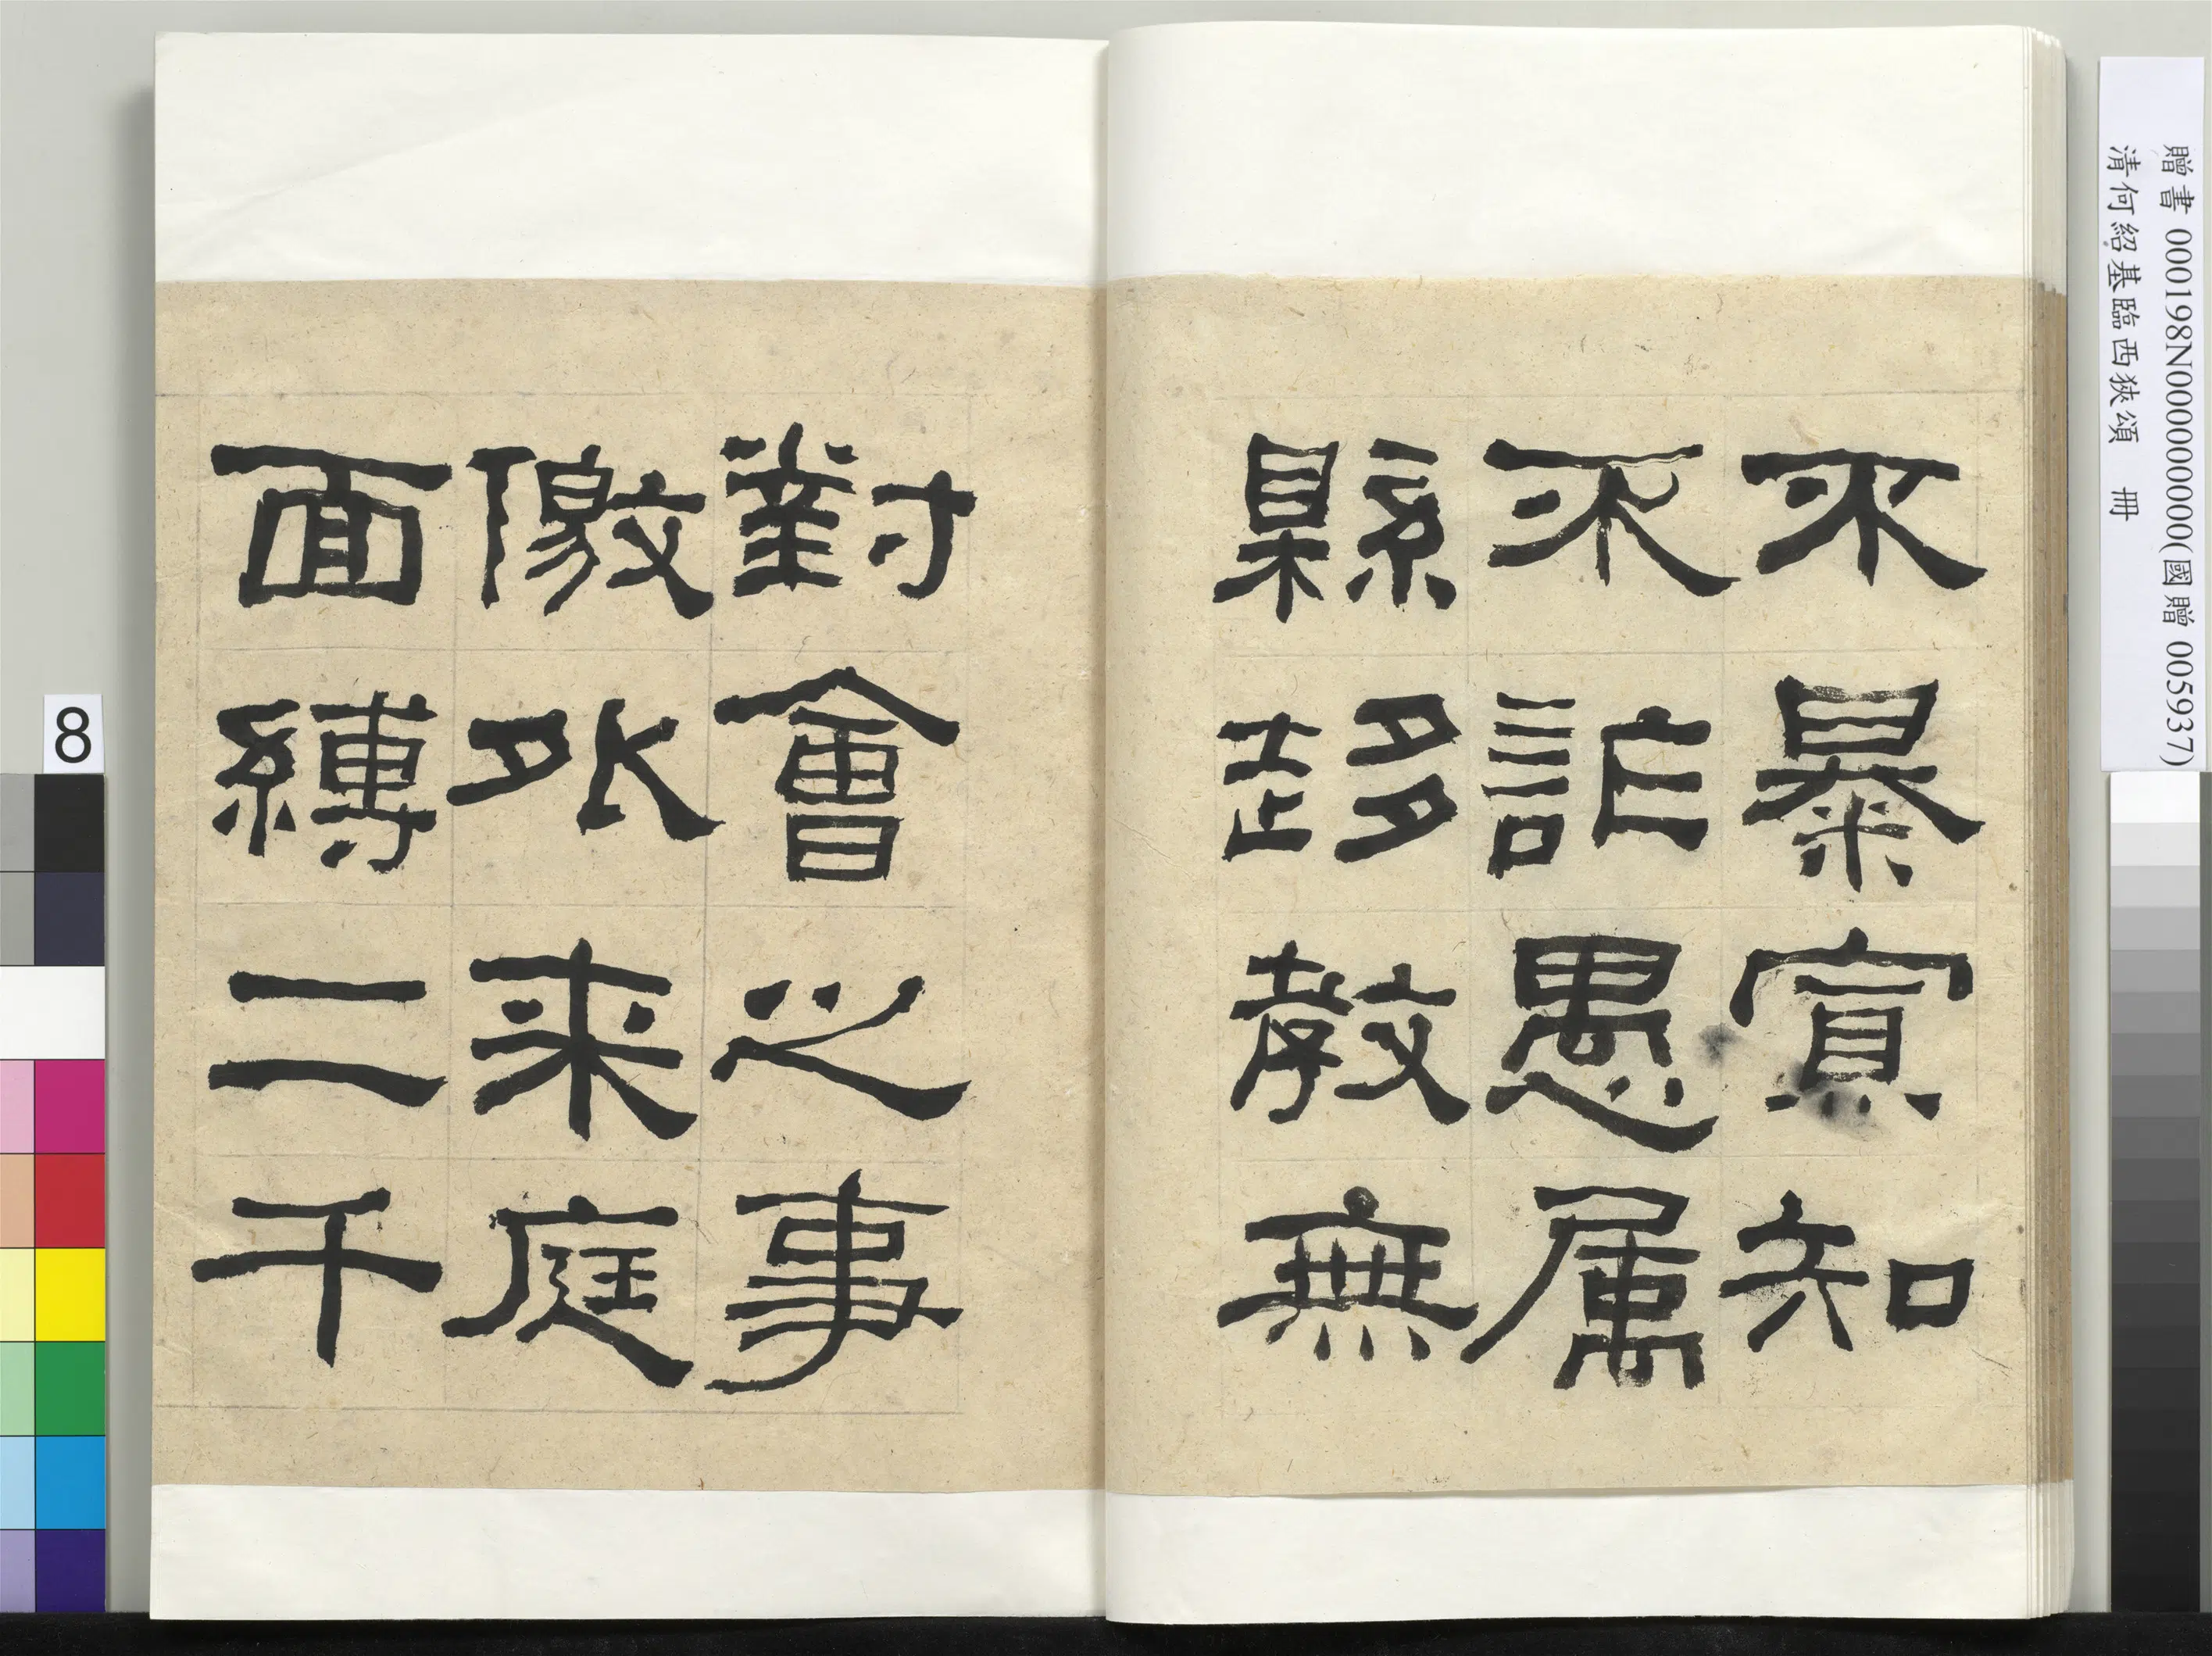 不暴寡知
不詐愚属
縣趍教無
對會之事
徼外来庭
面縛二千
贈書 000198N000000000(國贈 005937)
清何紹基臨西狹頌 冊
8